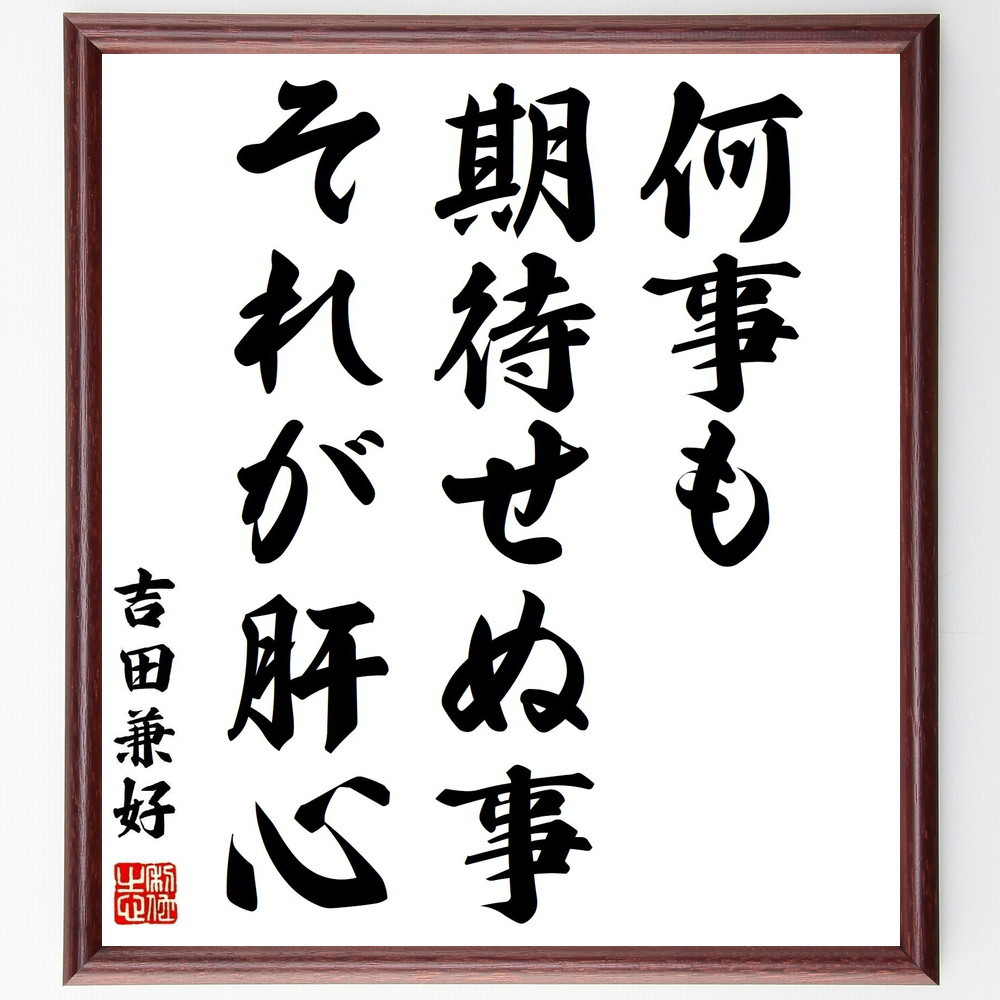 何事も
期待せぬ事
それが肝心
吉田兼好